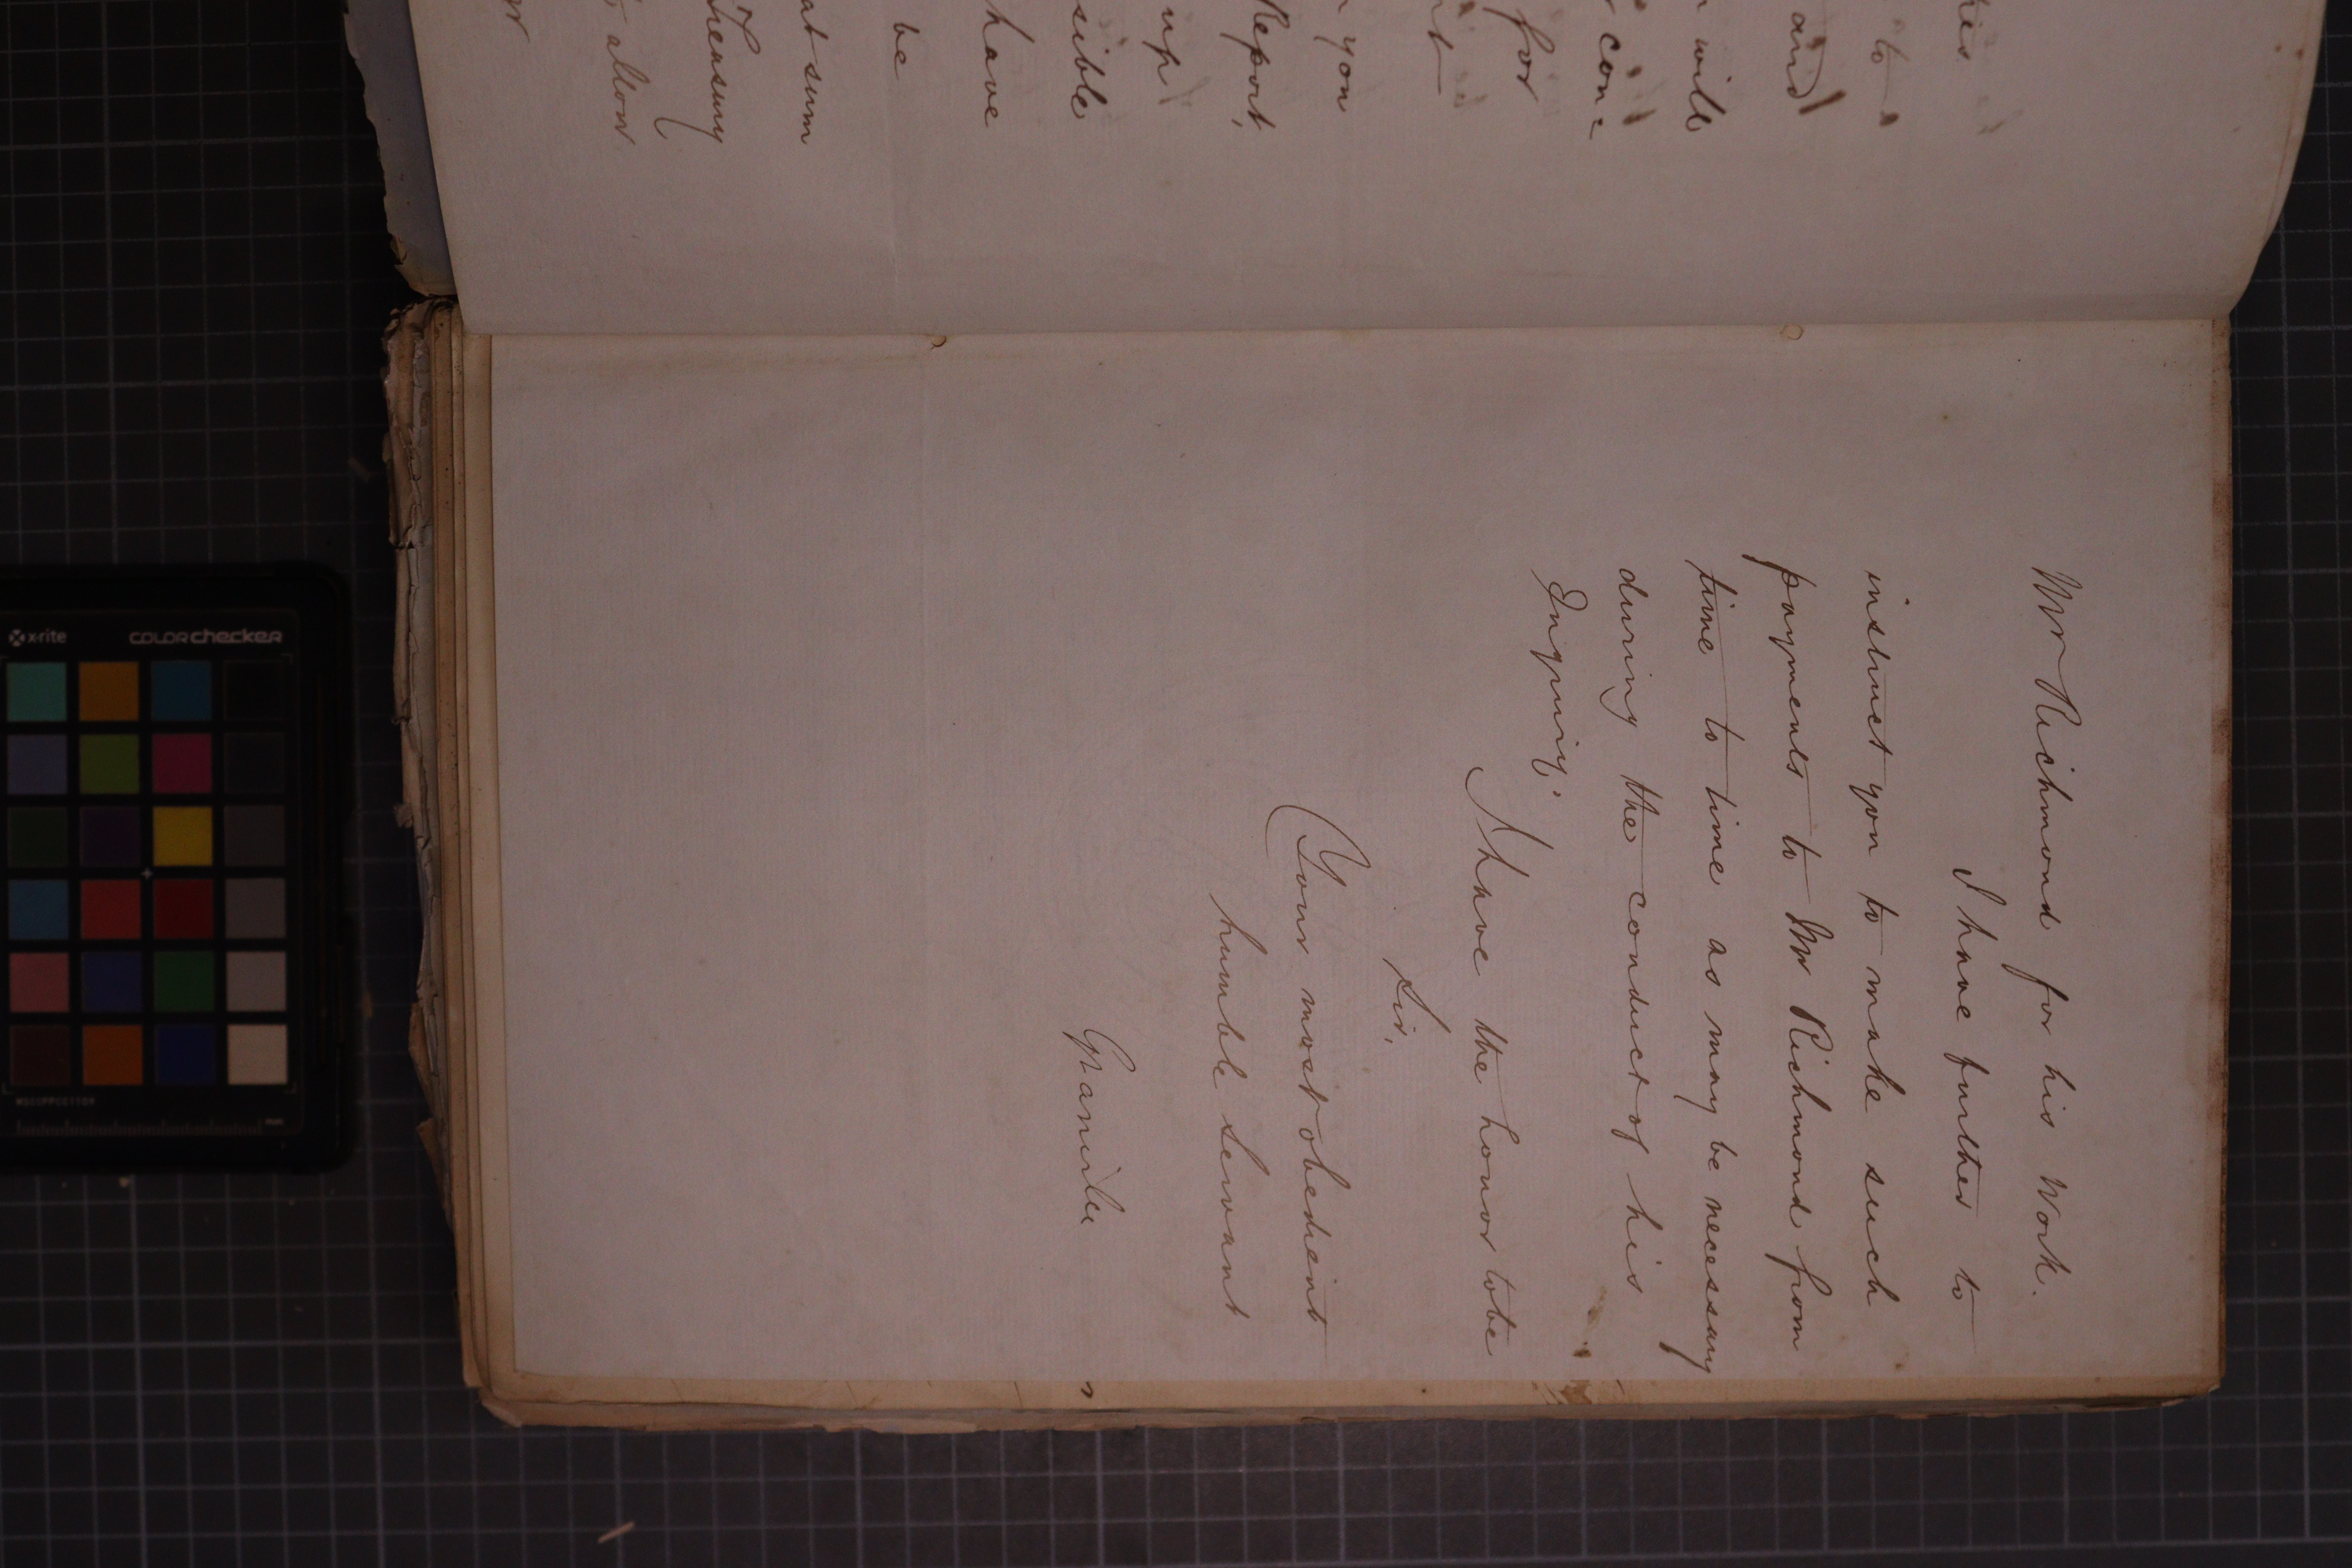 his
to
and
will
con=
for
you
Report,
up
sible
have
be
at sum
Treasury
allow
Mr Richmond for his Work.
I have further to
instruct you to make such
payments to Mr Richmond from
time to time as may be necessary
during the conduct of his
Inquiry.
I have the honor to be
Sir,
Your most obedient
humble servant
Granville
x-rite
colorchecker
mm